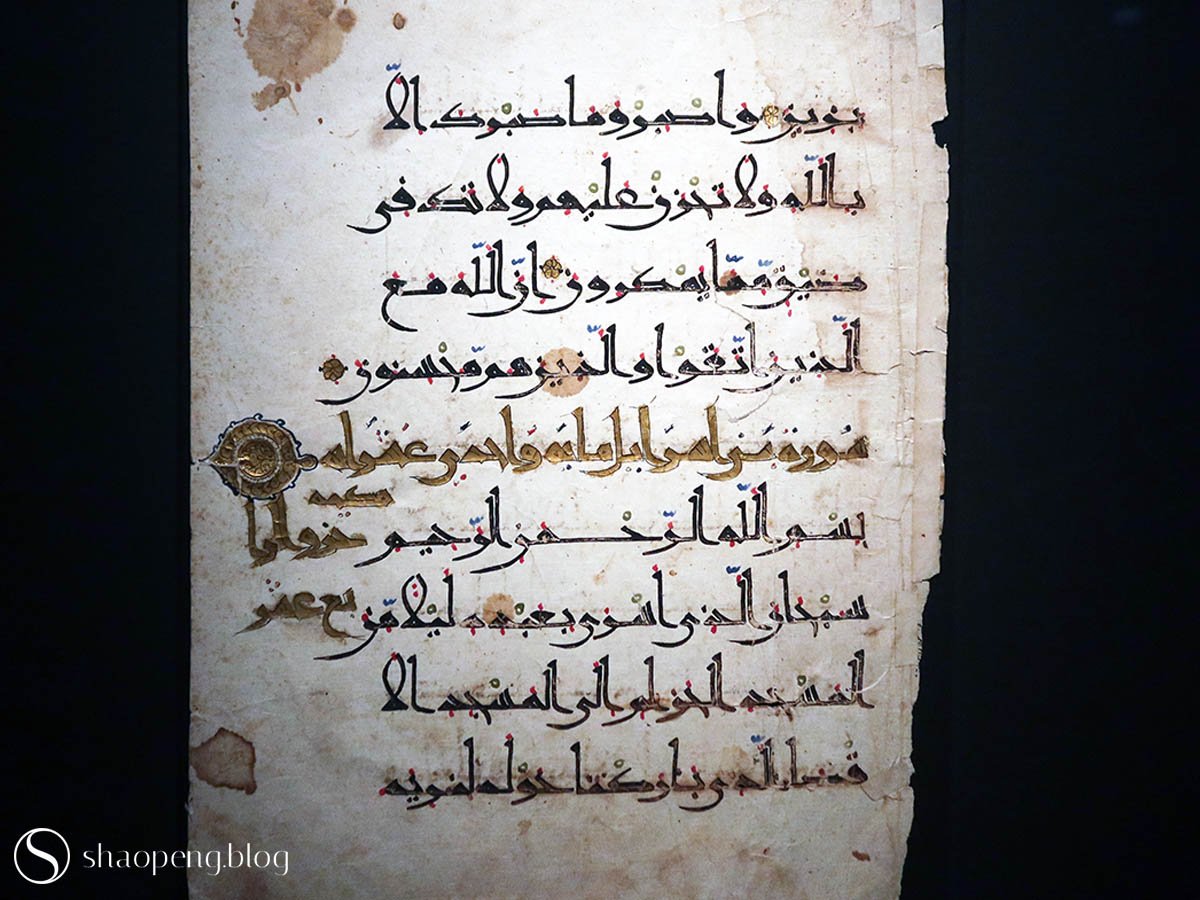 برين واصبر وما صبرك الا
بالله ولا تحزن عليهم ولا تك فى
ضيق مما يمكرون ان الله مع
الذين اتقوا والذين هم محسنون
سورة بنى اسرايل ماية واحدى عشر اية
مكية
بسم الله الرحمن الرحيم
سبحان الذى اسرى بعبده ليلا من
المسجد الحرام الى المسجد الا
قصا الذى باركنا حوله لنريه
shaopeng.blog